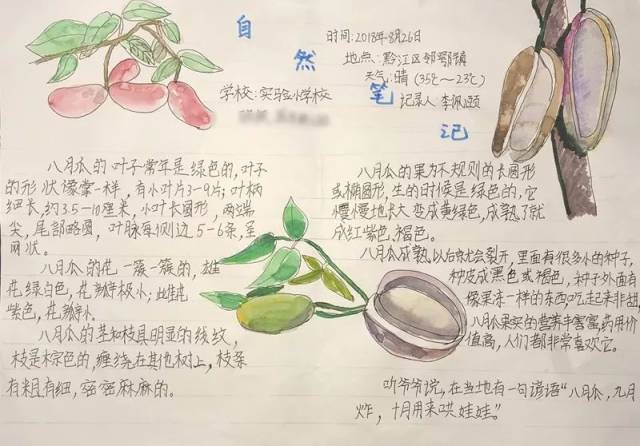 自然笔记
时间:2018年8月26日
地点:黔江区邻鄂镇
天气:晴(35℃~23℃)
学校:实验小学校
记录人 李佩颐
八月瓜的叶子常年是绿色的,叶子
的形状像掌一样,有小叶片3-9片;叶柄
细长,约3.5-10厘米,小叶长圆形,两端
尖,尾部略圆,叶脉每侧边5-6条,呈
网状。
八月瓜的花一簇一簇的,雄
花绿白色,花瓣极小;雌花
紫色,花瓣小。
八月瓜的茎和枝具明显的线纹,
枝是棕色的,缠绕在其他树上,枝条
有粗有细,密密麻麻的。
八月瓜的果为不规则的长圆形
或椭圆形,生的时候是绿色的,它
慢慢地长大变成黄绿色,成熟了就
成红紫色,褐色。
八月瓜成熟以后就会裂开,里面有很多小的种子,
种皮成黑色或褐色,种子外面有
像果冻一样的东西吃起来非甜,
八月瓜果实的营养丰富,药用价
值高,人们都非常喜欢它。
听爷爷说,在当地有一句谚语“八月瓜,九月
炸,十月用来哄娃娃。”